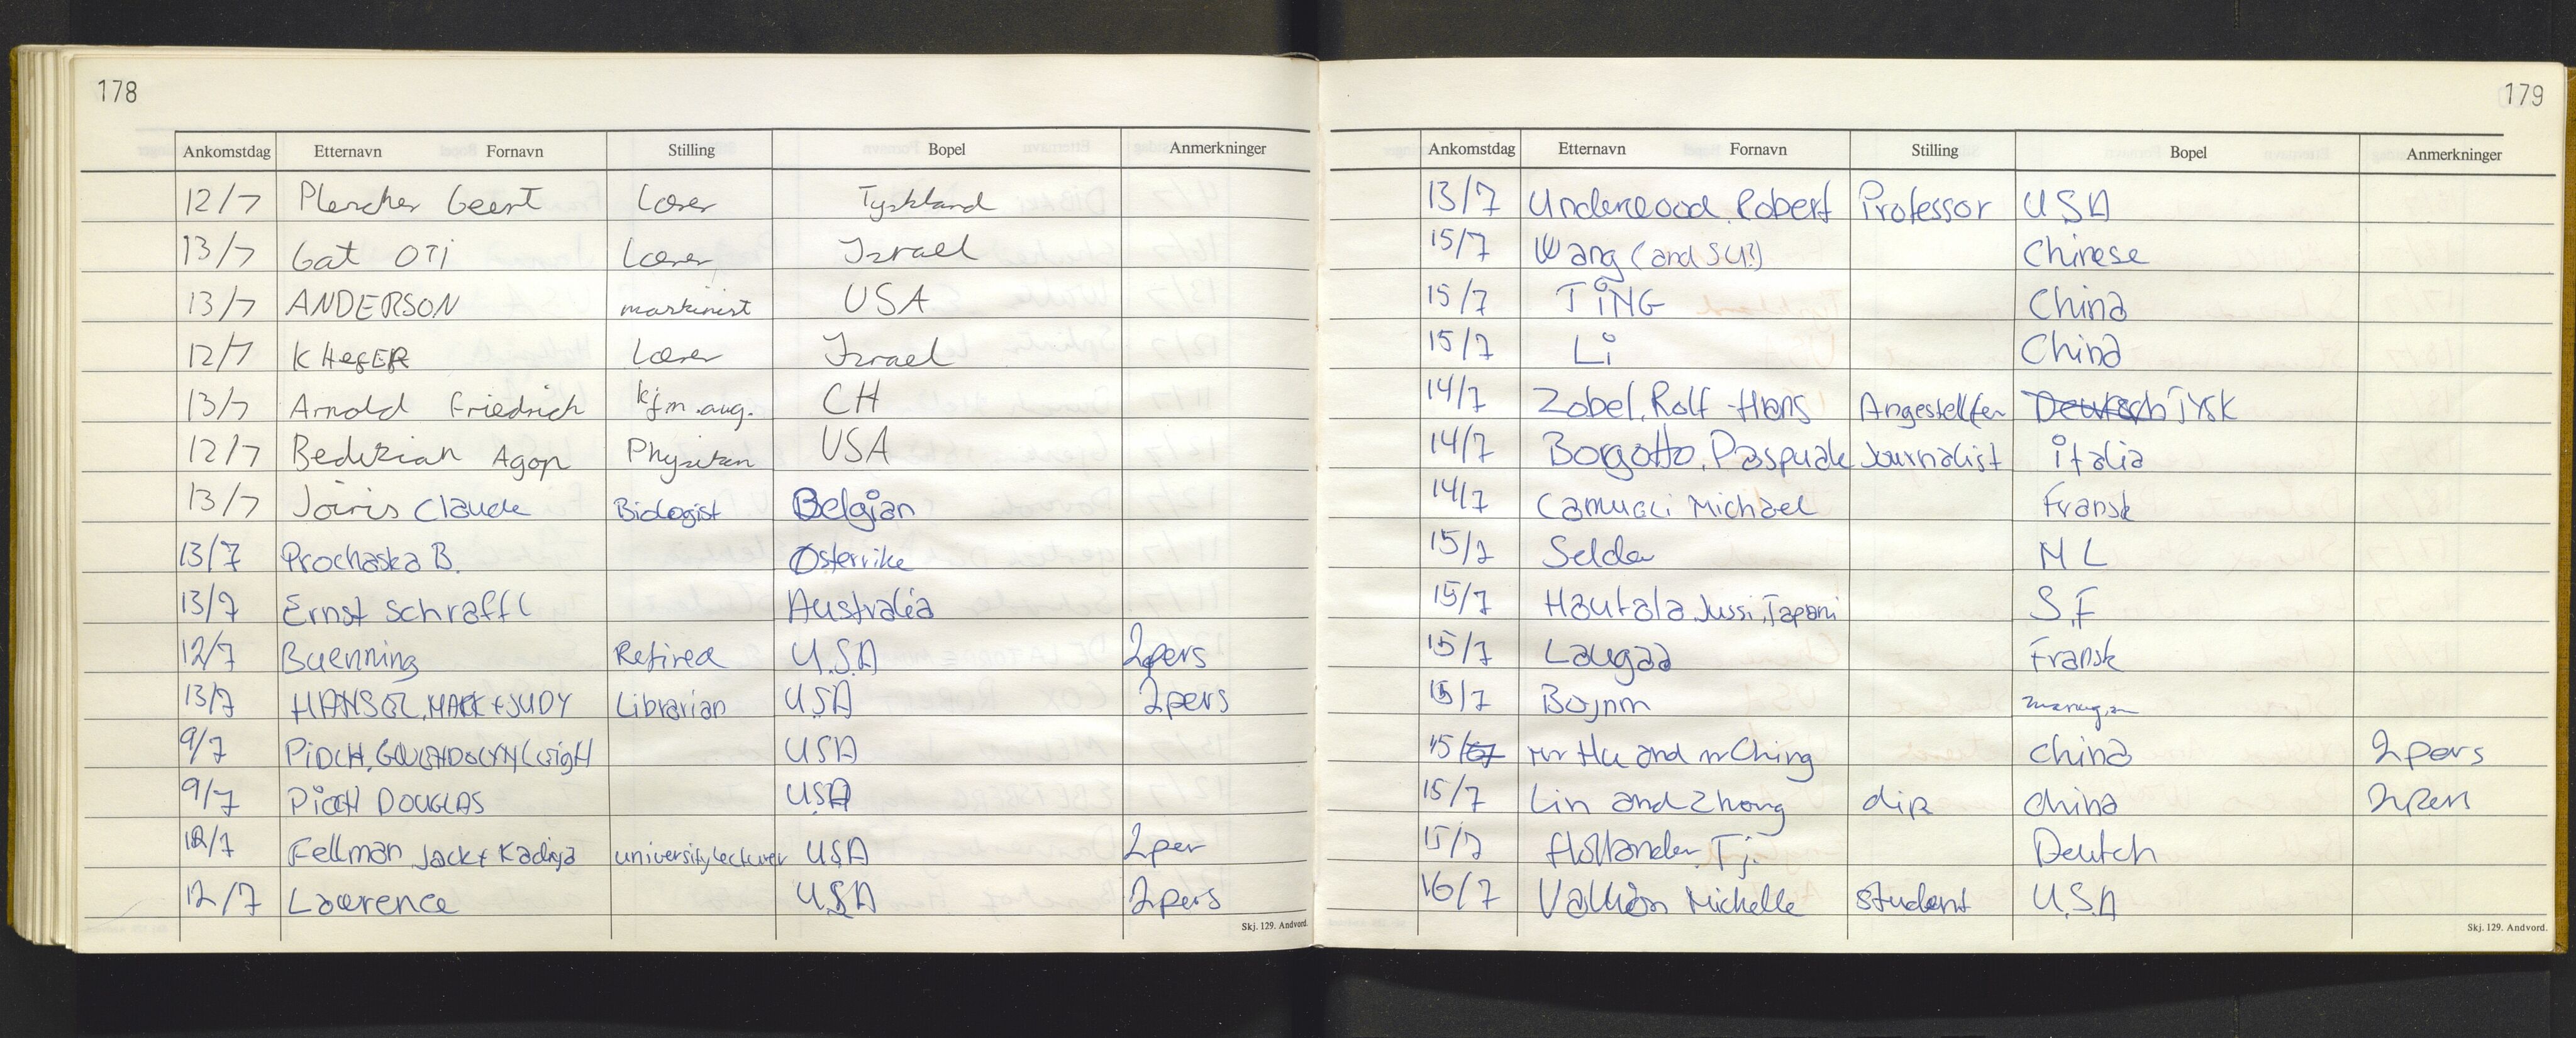 178
Ankomstdag Etternavn Fornavn Stilling Bopel Anmerkninger
12/7 Plescher Geert Lærer Tyskland
13/7 Gat OTi Lærer Izrael
13/7 ANDERSON maskinist USA
12/7 KHEFER Lærer Izrael
13/7 Arnold Friedrich kfm.aug. CH
12/7 Bedrizian Agop Physiker USA
13/7 Joiris Claude Biologist Belgian
13/7 Prochaska B. Østerrike
13/7 Ernst Schraffl Australia
12/7 Buenning Retired U.S.A 2pers
13/7 HANSEL, MARK + JUDY Librarian USA 2pers
9/7 PiDCH, USA
9/7 DOUGLAS USA
12/7 Fellman Jack + Kadiya university lecturer USA 2per
12/7 Lawrence U.S.A 2pers
Skj. 129. Andvord.
179
Ankomstdag Etternavn Fornavn Stilling Bopel Anmerkninger
13/7 Underwood, Robert Professor U.S.A
15/7 Wang (and SU?) Chinese
15/7 TiNG China
15/7 Li China
14/7 Zobel, Rolf Hans Angestellter Deutsch Tysk
14/7 Borgotto, Pasquale Journalist italia
14/7 Camucci Michael Fransk
15/7 Selder NL
15/7 Hautala, Jussi, Taponi S.F
15/7 Laugaa Fransk
15/7 Bojnm
15/7 Mr Hu and mr Ching China 2pers
15/7 Lin and Zhong dip China 2pers
15/7 Hollander Tj. Deutch
16/7 Michelle Student U.S.A
Skj. 129. Andvord.